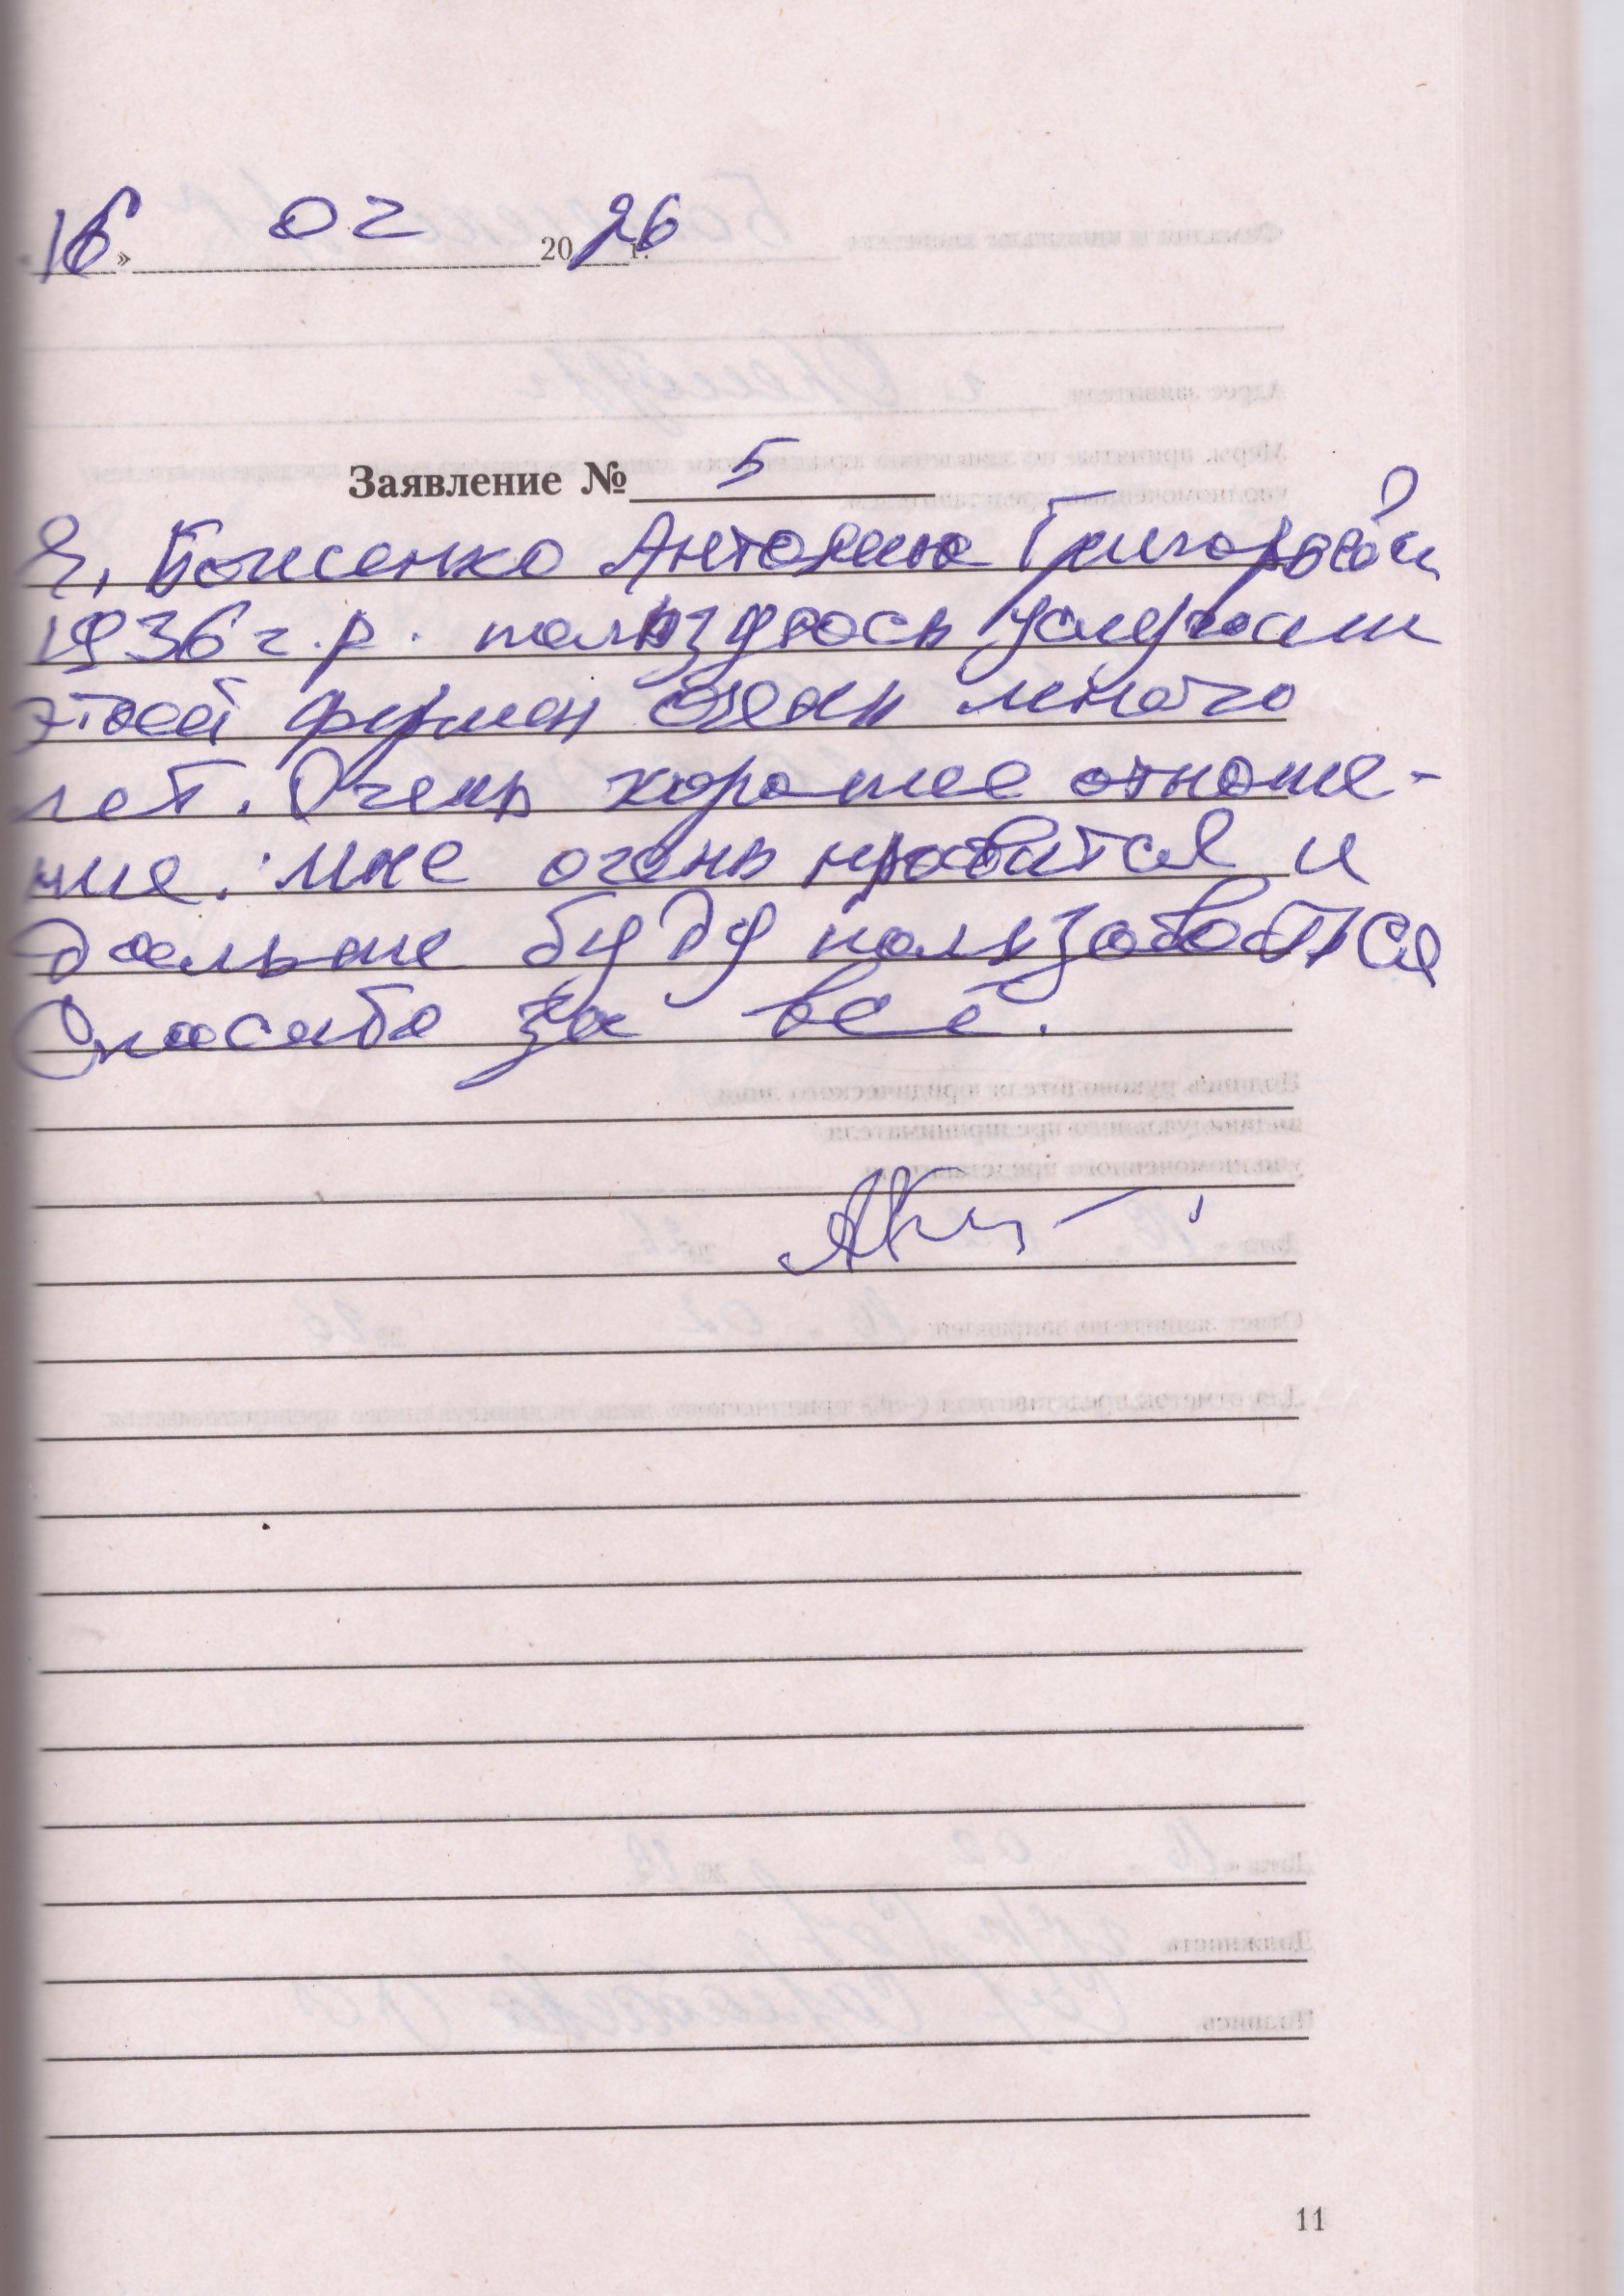 16 » 02 2026 г.
Заявление № 5
Я, Боженко Антонина Григорьев
1936 г.р. пользуюсь услугами
этой фирмы очень много
лет. Очень хорошее отноше-
ние. Мне очень нравится и
дальше буду пользоваться
Спасибо за всё.
11